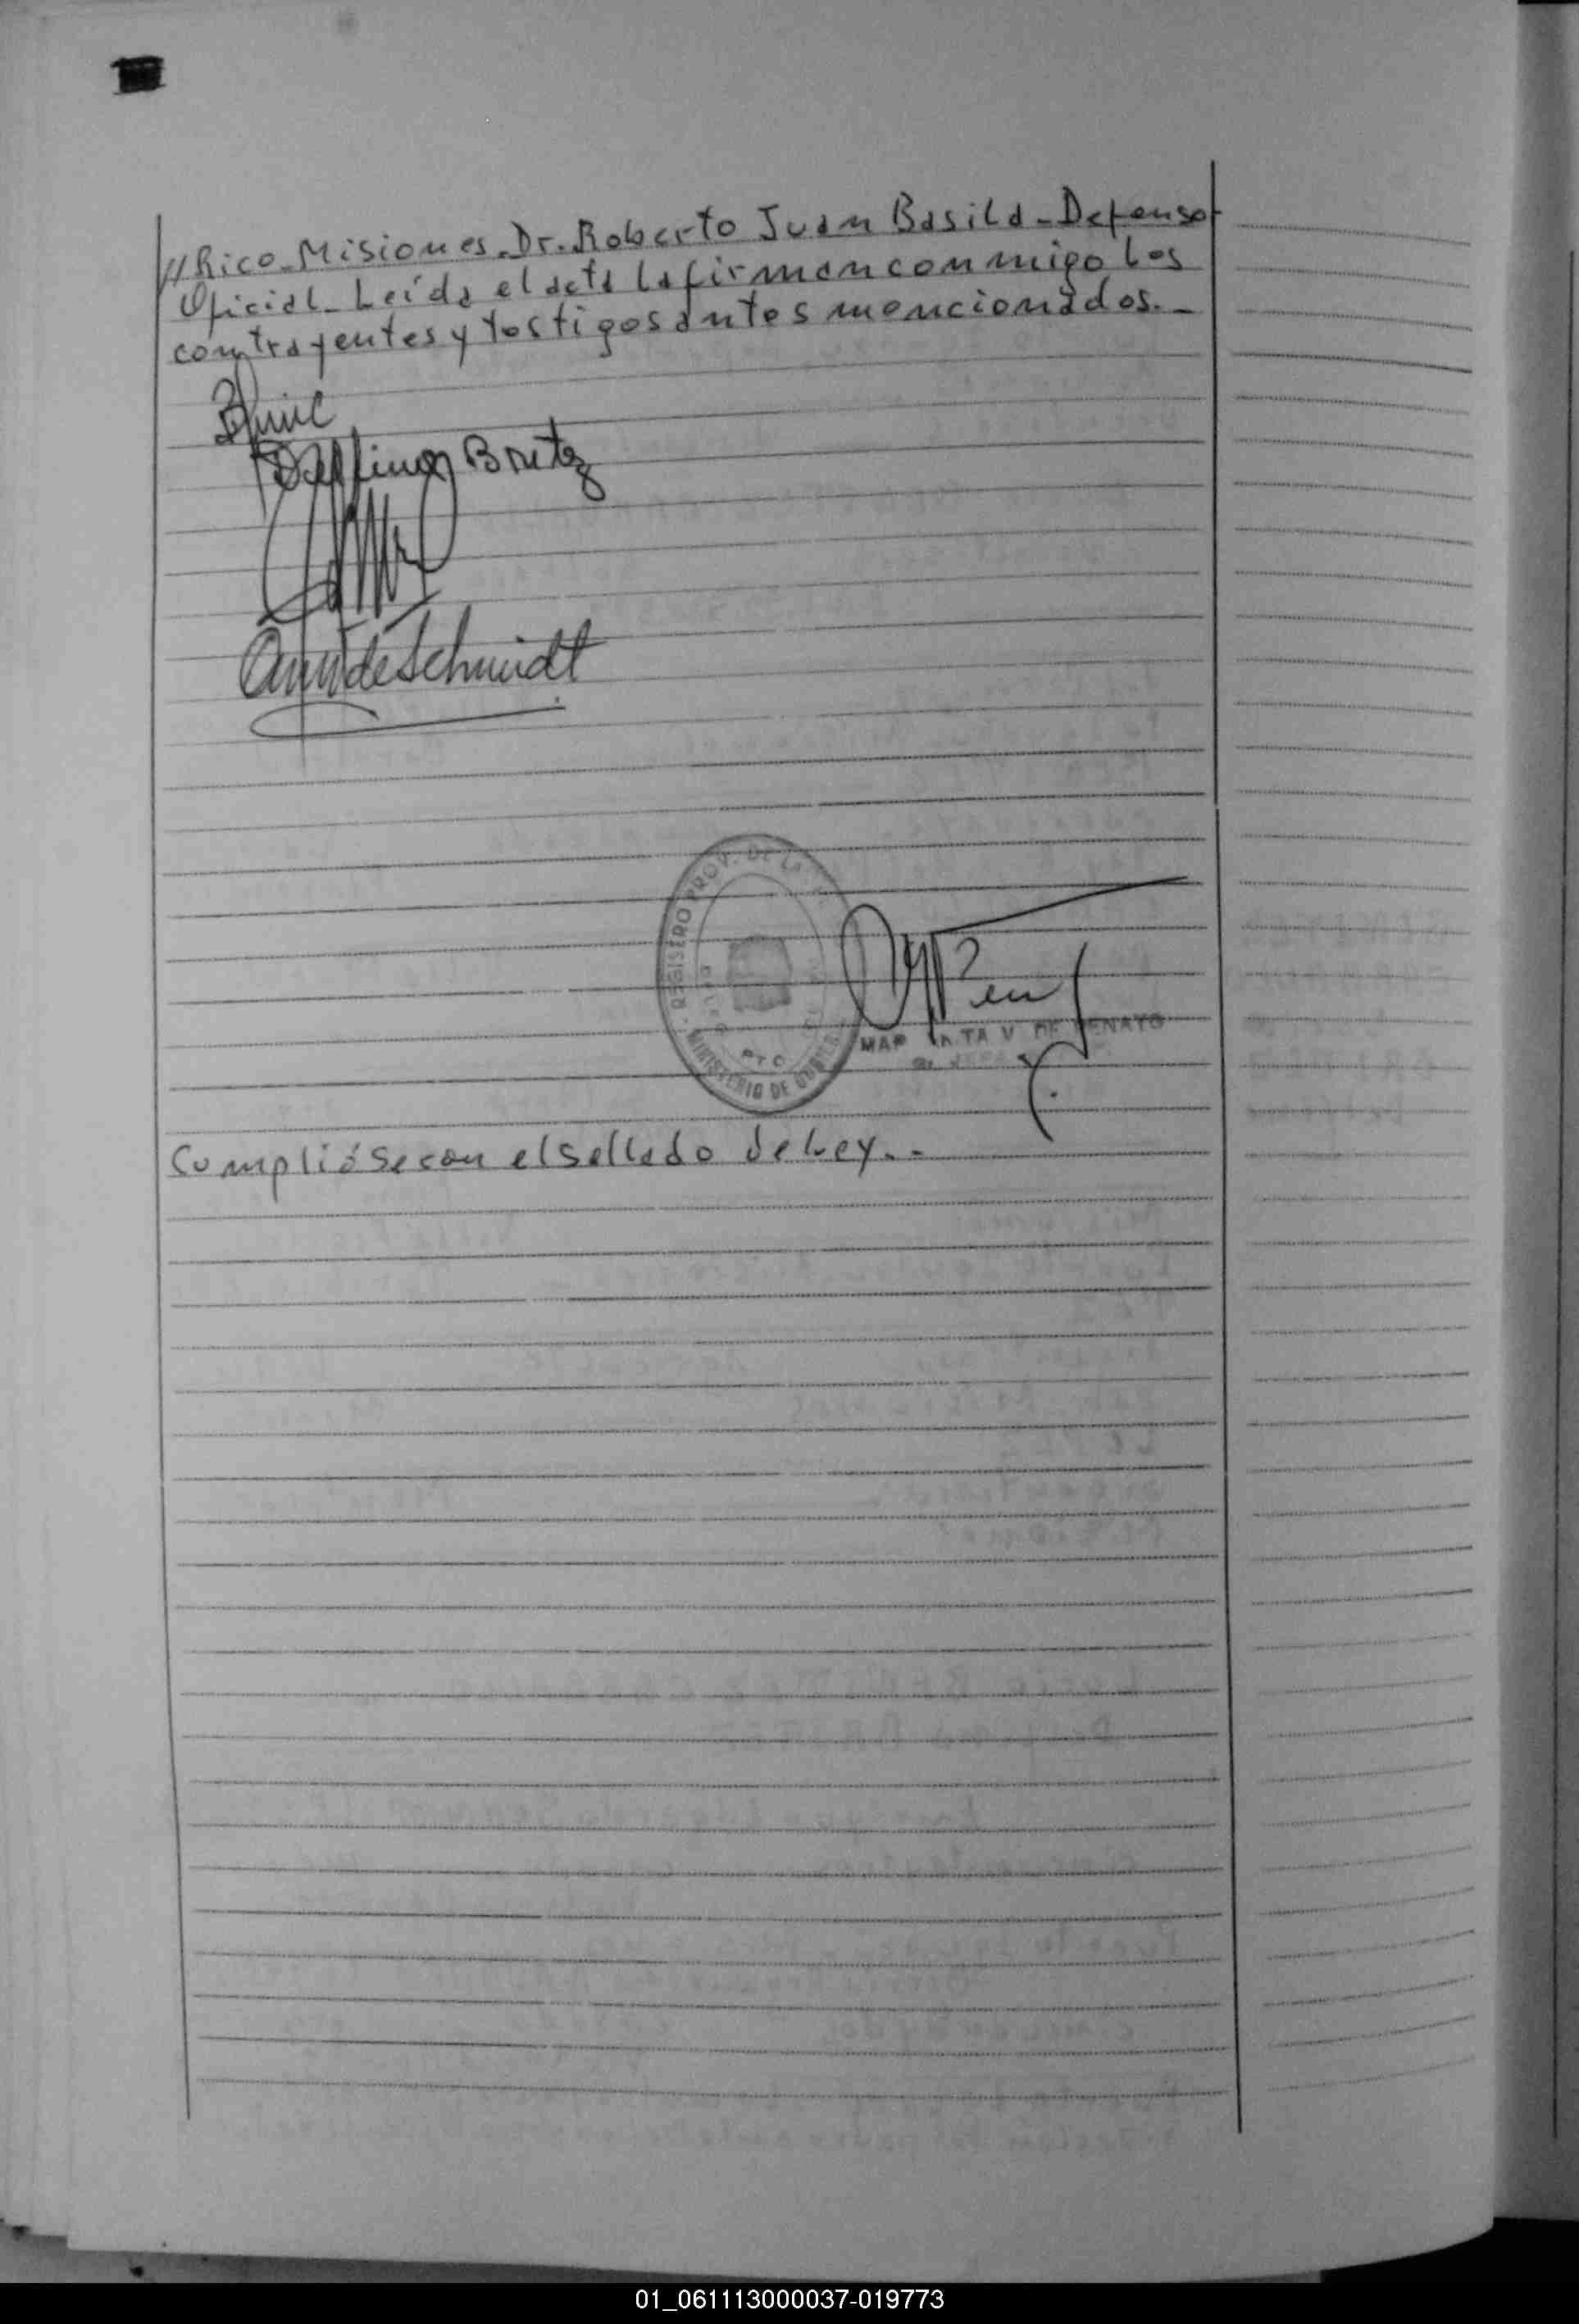 //Rico_Misiones_Dr. Roberto Juan Basila_Defensor
Oficial_Leída el acta la firman conmigo los
contrayentes y testigos antes mencionados._
Delfino Britez
de Schmidt
REGISTRO PROV. DE LA
MINISTERIO DE GOBIER
TA V. DE PENAYO
Cumplióse con el sellado de Ley._
01_061113000037-019773